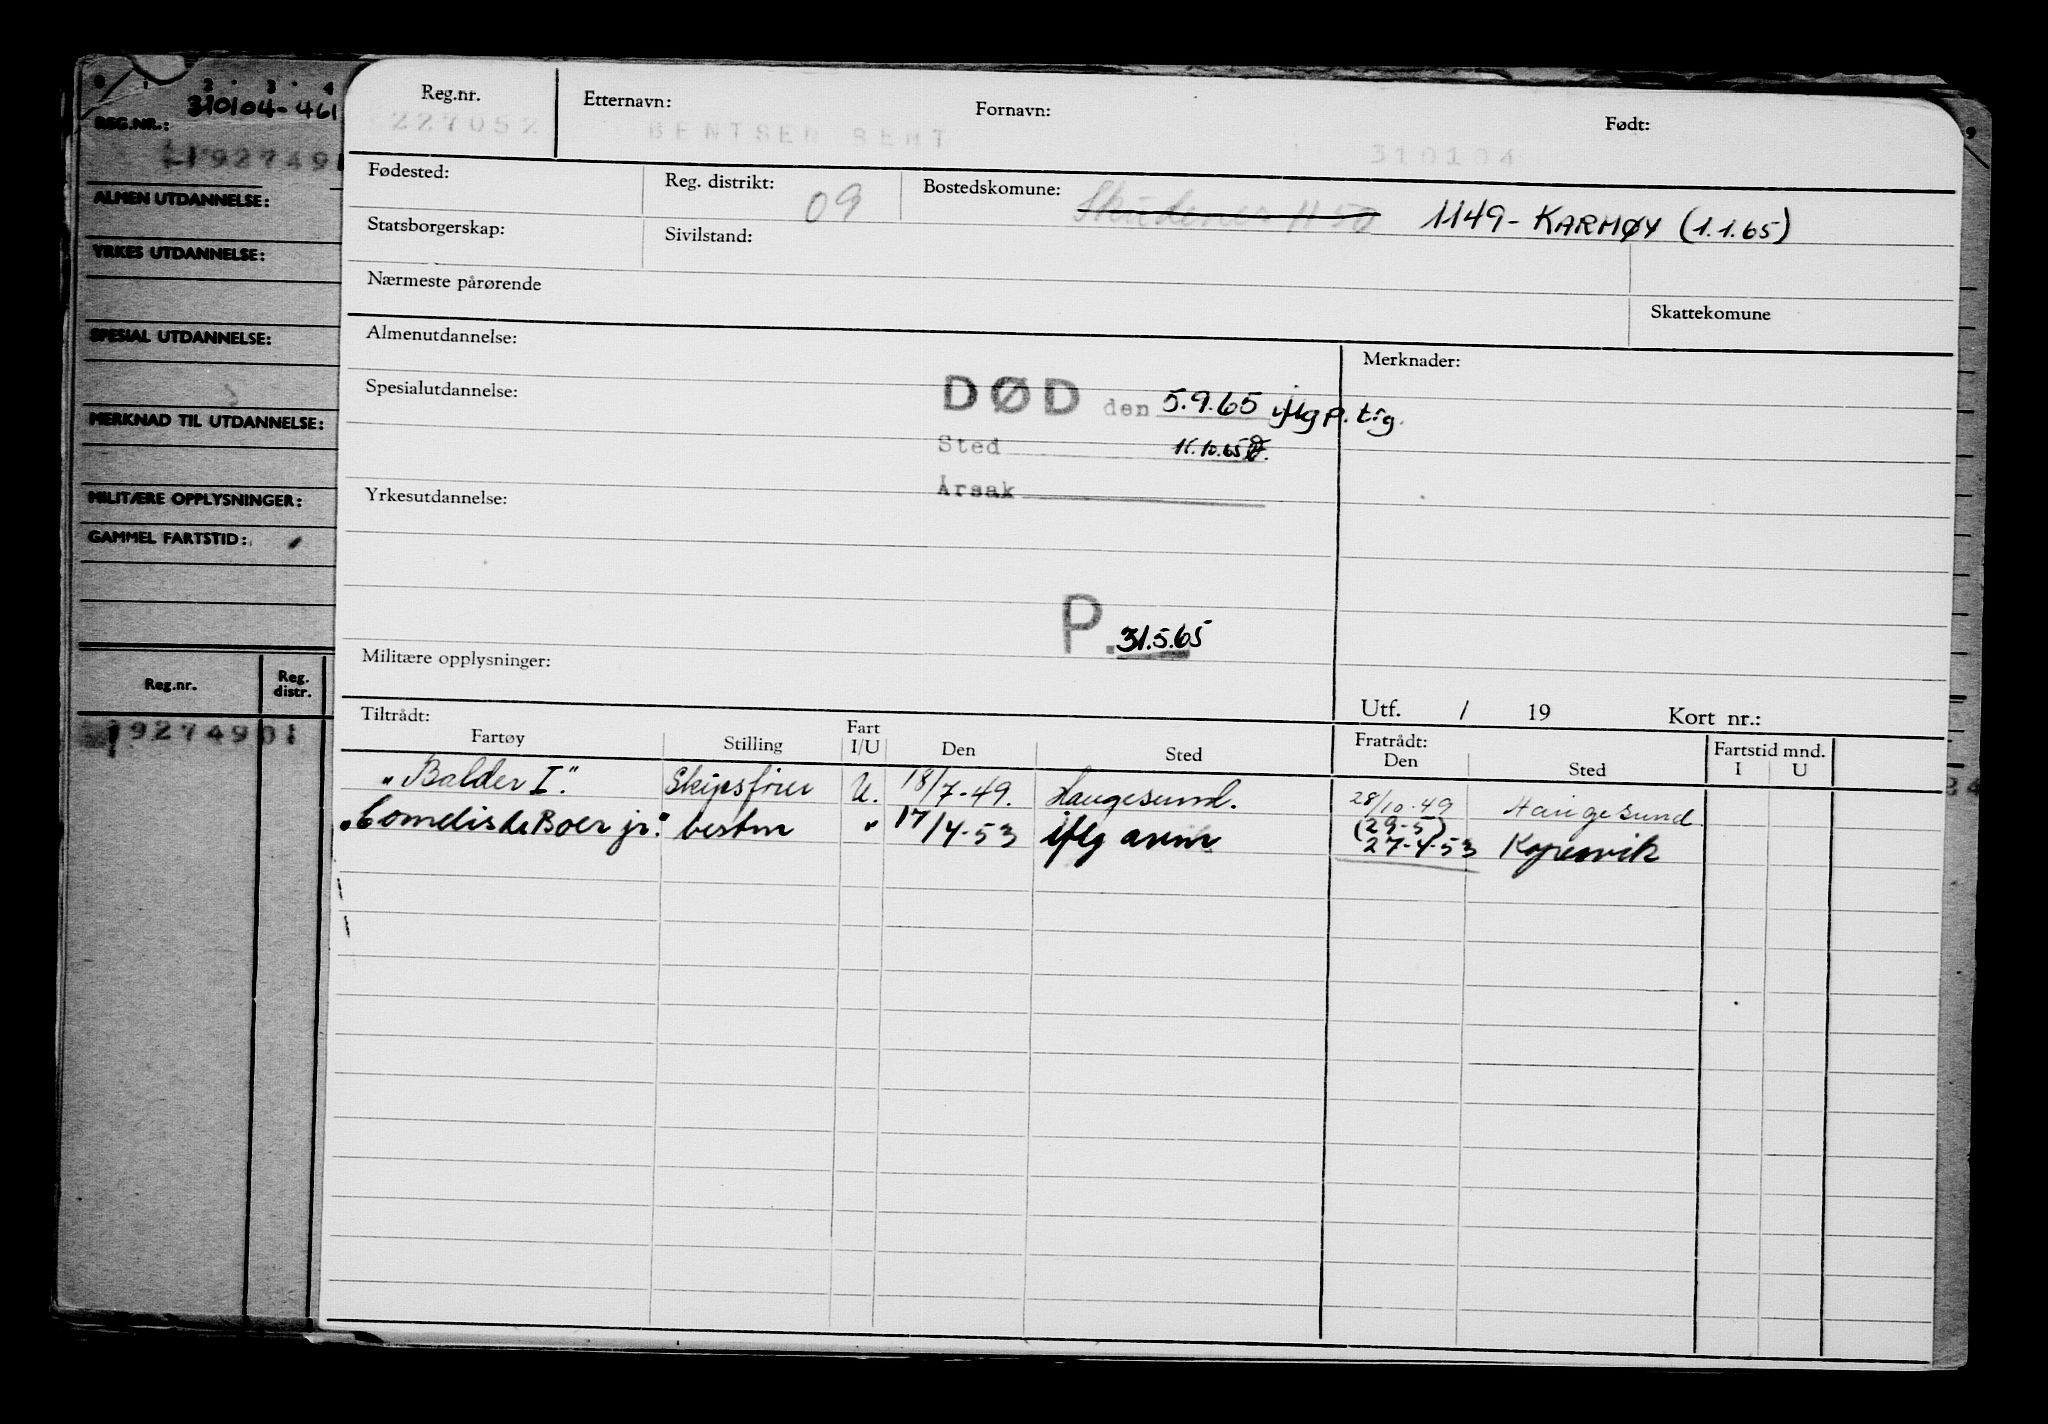 0 1 2 3 4
310104-461
REG.NR.:
9274901
ALMEN UTDANNELSE:
YRKES UTDANNELSE:
SPESIAL UTDANNELSE:
MERKNAD TIL UTDANNELSE:
MILITÆRE OPPLYSNINGER:
GAMMEL FARTSTID:
Reg.nr. Reg. distr.
9274901
Reg.nr. Etternavn: Fornavn: Født:
227052 BENTSEN BENT 310104
Fødested: Reg. distrikt: 09 Bostedskomune: Skudenes 1150 1149-KARMØY (1.1.65)
Statsborgerskap: Sivilstand:
Nærmeste pårørende
Skattekomune
Almenutdannelse: Merknader:
Spesialutdannelse: DØD den 5.9.65 iflg p. tlg.
Sted 11.10.65
Årsak
Yrkesutdannelse:
P. 31.5.65
Militære opplysninger:
Utf. / 19 Kort nr.:
Tiltrådt: Fratrådt: Fartstid mnd.
Fartøy Stilling Fart I/U Den Sted Den Sted I U
"Balder I." Skipsfører U. 18/7-49. Haugesund. 28/10-49 Haugesund
"Cornelis de Boer jr." bestm " 17/4-53 iflg anm (29-5) 27-4-53 Kopervik